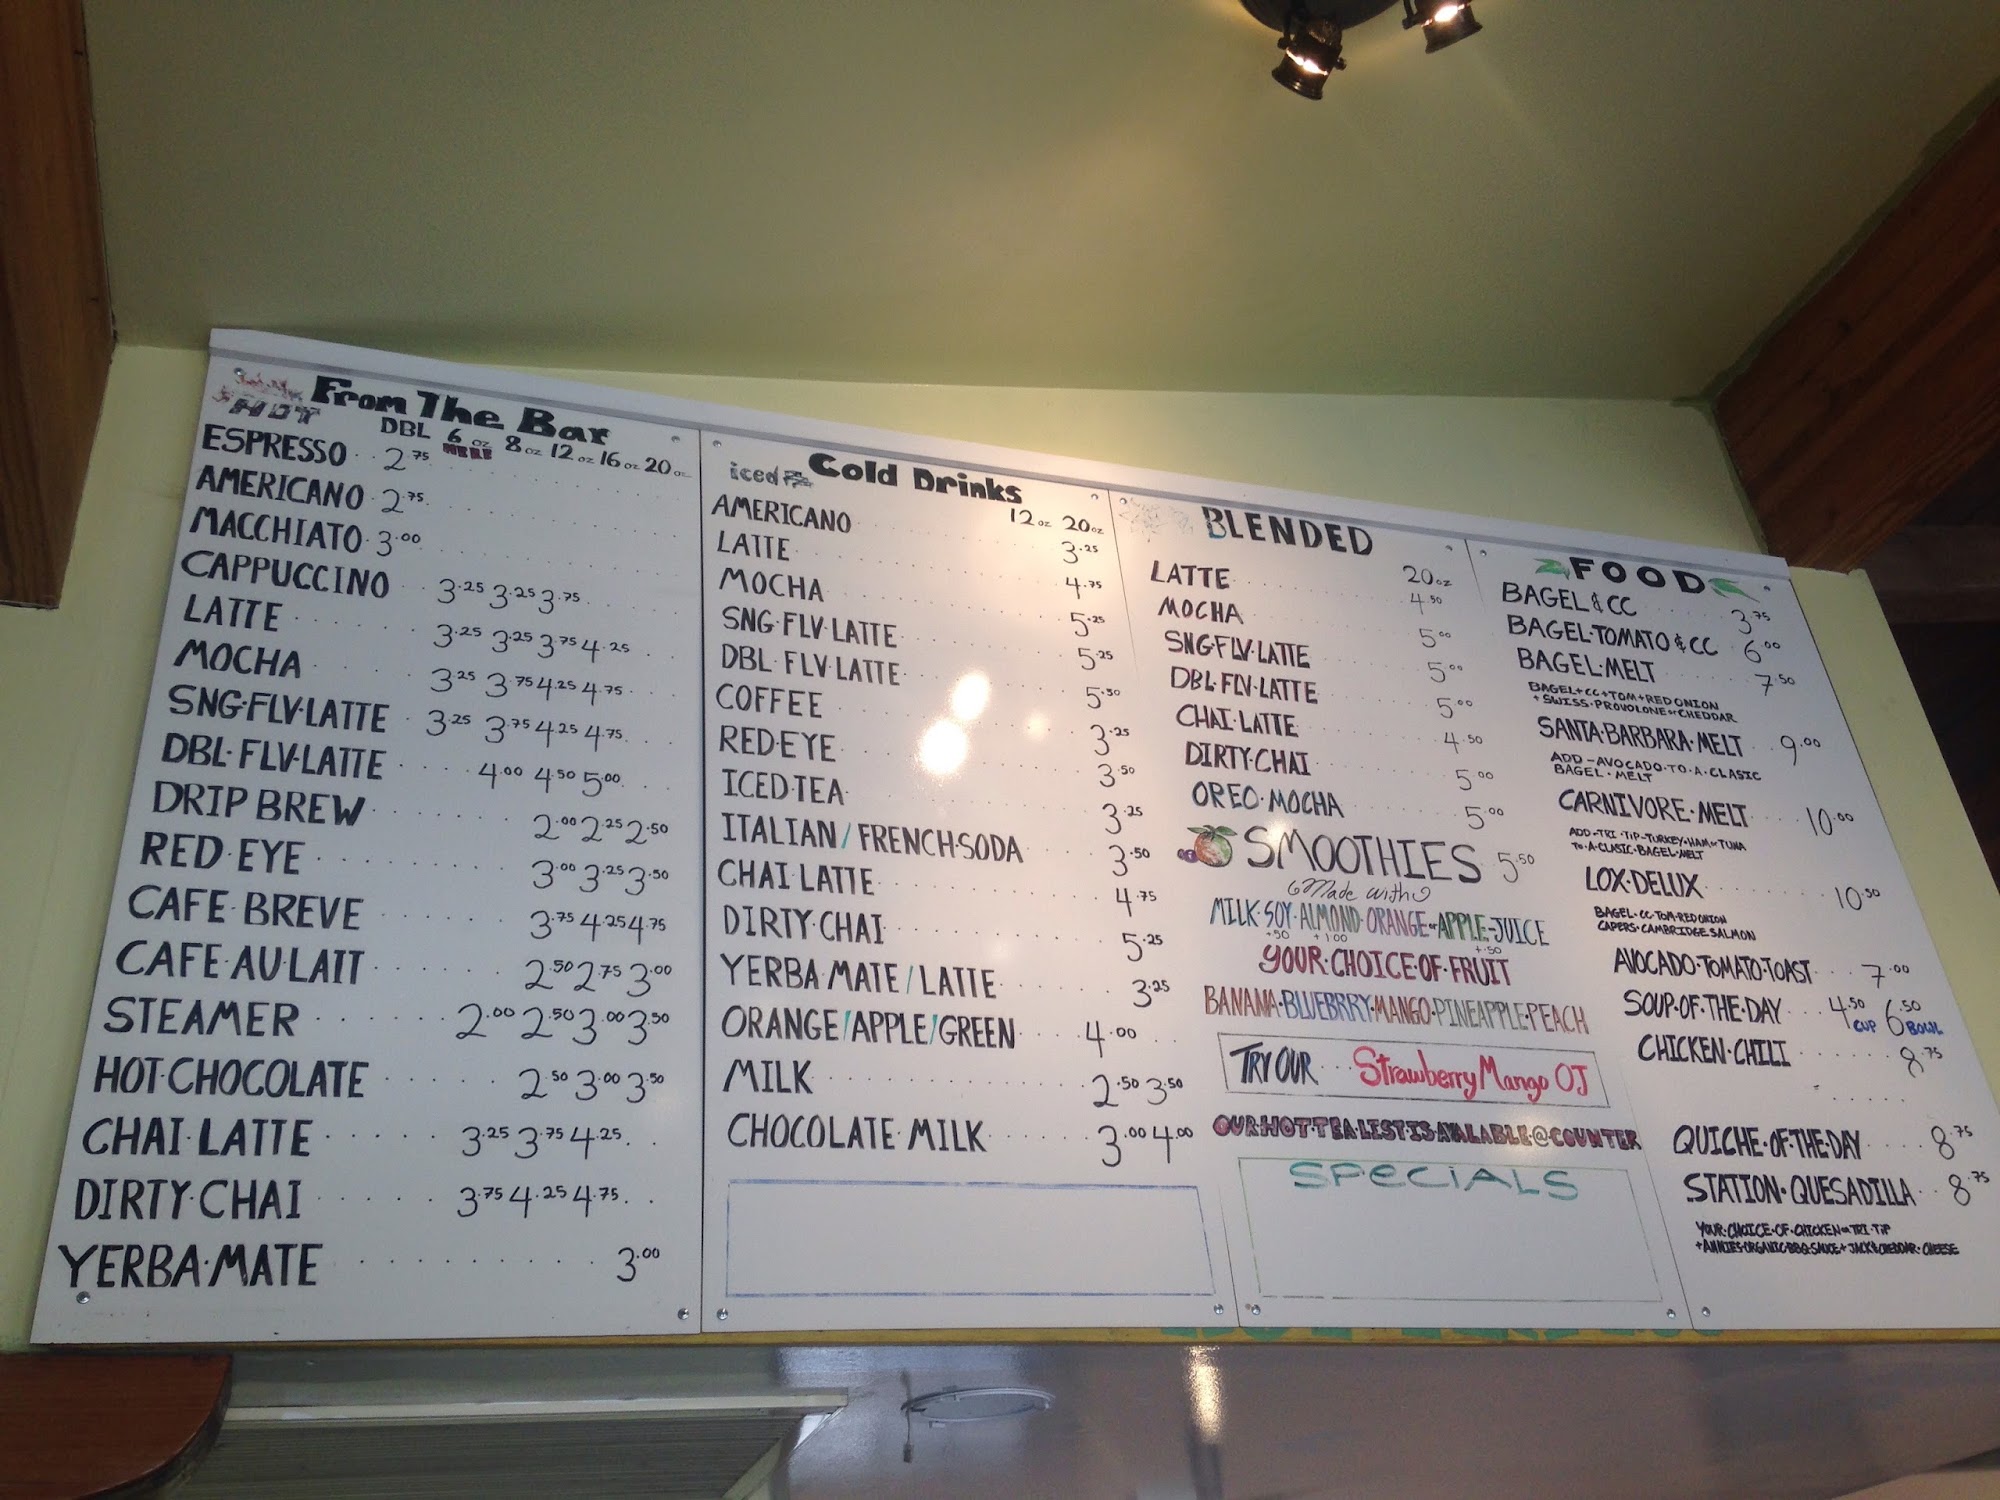 From The Bar
HOT
DBL 6 oz 8 oz 12 oz 16 oz 20 oz
ESPRESSO 2.75
AMERICANO 2.75
MACCHIATO 3.00
CAPPUCCINO 3.25 3.25 3.75
LATTE 3.25 3.25 3.75 4.25
MOCHA 3.25 3.75 4.25 4.75
SNG·FLV·LATTE 3.25 3.75 4.25 4.75
DBL·FLV·LATTE 4.00 4.50 5.00
DRIP BREW 2.00 2.25 2.50
RED·EYE 3.00 3.25 3.50
CAFE·BREVE 3.75 4.25 4.75
CAFE·AU·LAIT 2.50 2.75 3.00
STEAMER 2.00 2.50 3.00 3.50
HOT·CHOCOLATE 2.50 3.00 3.50
CHAI·LATTE 3.25 3.75 4.25
DIRTY·CHAI 3.75 4.25 4.75
YERBA·MATE 3.00
iced Cold Drinks
12 oz 20 oz
AMERICANO 3.25
LATTE 4.75
MOCHA 5.25
SNG·FLV·LATTE 5.25
DBL·FLV·LATTE 5.50
COFFEE 3.25
RED·EYE 3.50
ICED·TEA 3.25
ITALIAN/FRENCH·SODA 3.50
CHAI·LATTE 4.75
DIRTY·CHAI 5.25
YERBA·MATE/LATTE 3.25
ORANGE/APPLE/GREEN 4.00
MILK 2.50 3.50
CHOCOLATE MILK 3.00 4.00
BLENDED
20oz
LATTE 4.50
MOCHA 5.00
SNG·FLV·LATTE 5.00
DBL·FLV·LATTE 5.00
CHAI·LATTE 4.50
DIRTY·CHAI 5.00
OREO·MOCHA 5.00
SMOOTHIES 5.50
Made with
MILK·SOY·ALMOND·ORANGE or APPLE-JUICE
+.50 +1.00 +.50
YOUR·CHOICE·OF·FRUIT
BANANA·BLUEBRRY·MANGO·PINEAPPLE·PEACH
TRY OUR... Strawberry Mango OJ
OUR·HOT·TEA·LIST·IS·AVALABLE@COUNTER
SPECIALS
FOOD
BAGEL & CC 3.75
BAGEL·TOMATO & CC 6.00
BAGEL·MELT 7.50
BAGEL+CC+TOM+RED ONION
+SWISS·PROVOLONE or CHEDDAR
SANTA·BARBARA·MELT 9.00
ADD-AVOCADO·TO·A·CLASIC
BAGEL·MELT
CARNIVORE·MELT 10.00
ADD-TRI·TIP-TURKEY-HAM or TUNA
To·A·CLASIC·BAGEL·MELT
LOX·DELUX 10.50
BAGEL·CC·TOM·RED ONION
CAPERS·CAMBRIDGE SALMON
AVOCADO·TOMATO·TOAST 7.00
SOUP·OF·THE·DAY 4.50 CUP 6.50 BOWL
CHICKEN·CHILI 8.75
QUICHE·OF·THE·DAY 8.75
STATION·QUESADILLA 8.75
YOUR·CHOICE·OF·CHICKEN or TRI·TIP
+ANNIES·ORGANIC·BBQ·SAUCE+JACK & CHEDDAR·CHEESE